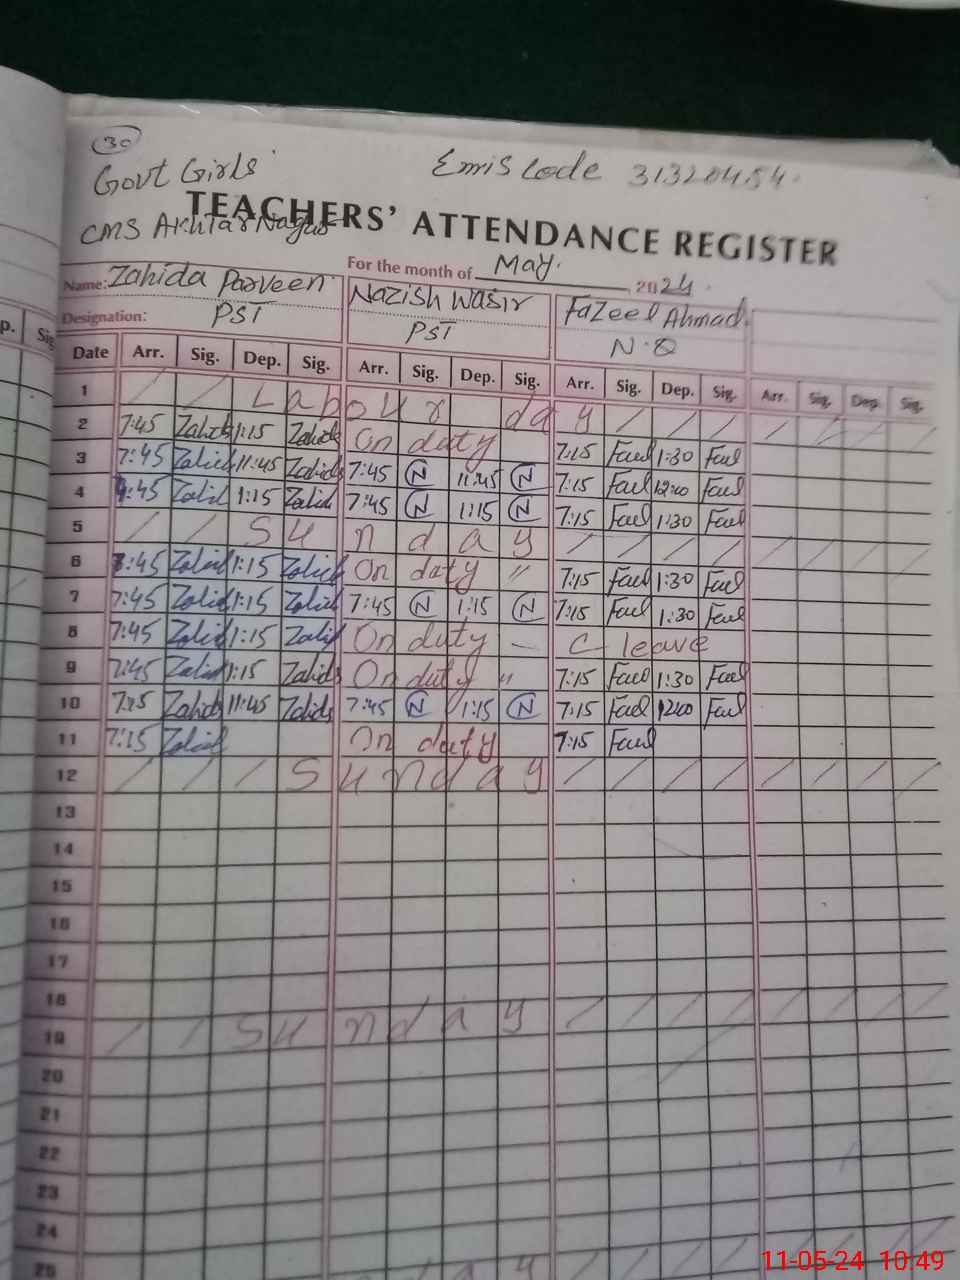 30
Govt Girls Emis Code 31320454.
TEACHERS' ATTENDANCE REGISTER
CMS Akhtar Nagar
For the month of May. 2024.
Name: Zahida Parveen Nazish Wasir Fazeel Ahmad.
Designation: PST PST N.Q
p. Sig
Date Arr. Sig. Dep. Sig. Arr. Sig. Dep. Sig. Arr. Sig. Dep. Sig. Arr. Sig. Dep. Sig.
1 / / Labour day / / / / / / /
2 7:45 Zahida 1:15 Zahida On duty 7:15 Faeel 1:30 Faeel
3 7:45 Zahida 11:45 Zahida 7:45 N 11:45 N 7:15 Faeel 12:00 Faeel
4 7:45 Zahid 1:15 Zahid 7:45 N 1:15 N 7:15 Faeel 1:30 Faeel
5 / / Sunday / / / / / / / /
6 7:45 Zahid 1:15 Zahid On duty " 7:15 Faeel 1:30 Faeel
7 7:45 Zahid 1:15 Zahid 7:45 N 1:15 N 7:15 Faeel 1:30 Faeel
8 7:45 Zahid 1:15 Zahid On duty — C leave
9 7:45 Zahid 1:15 Zahida On duty " 7:15 Faeel 1:30 Faeel
10 Zahida 11:45 Zahida 7:45 N 1:15 N 7:15 Faeel 12:00 Faeel
11 7:15 Zahid On duty 7:15 Faeel
12 / / / Sunday / / / / / / / /
13
14
15
16
17
18
19 / / Sunday / / / / / / / /
20
21
22
23
24
25 day
11-05-24 10:49